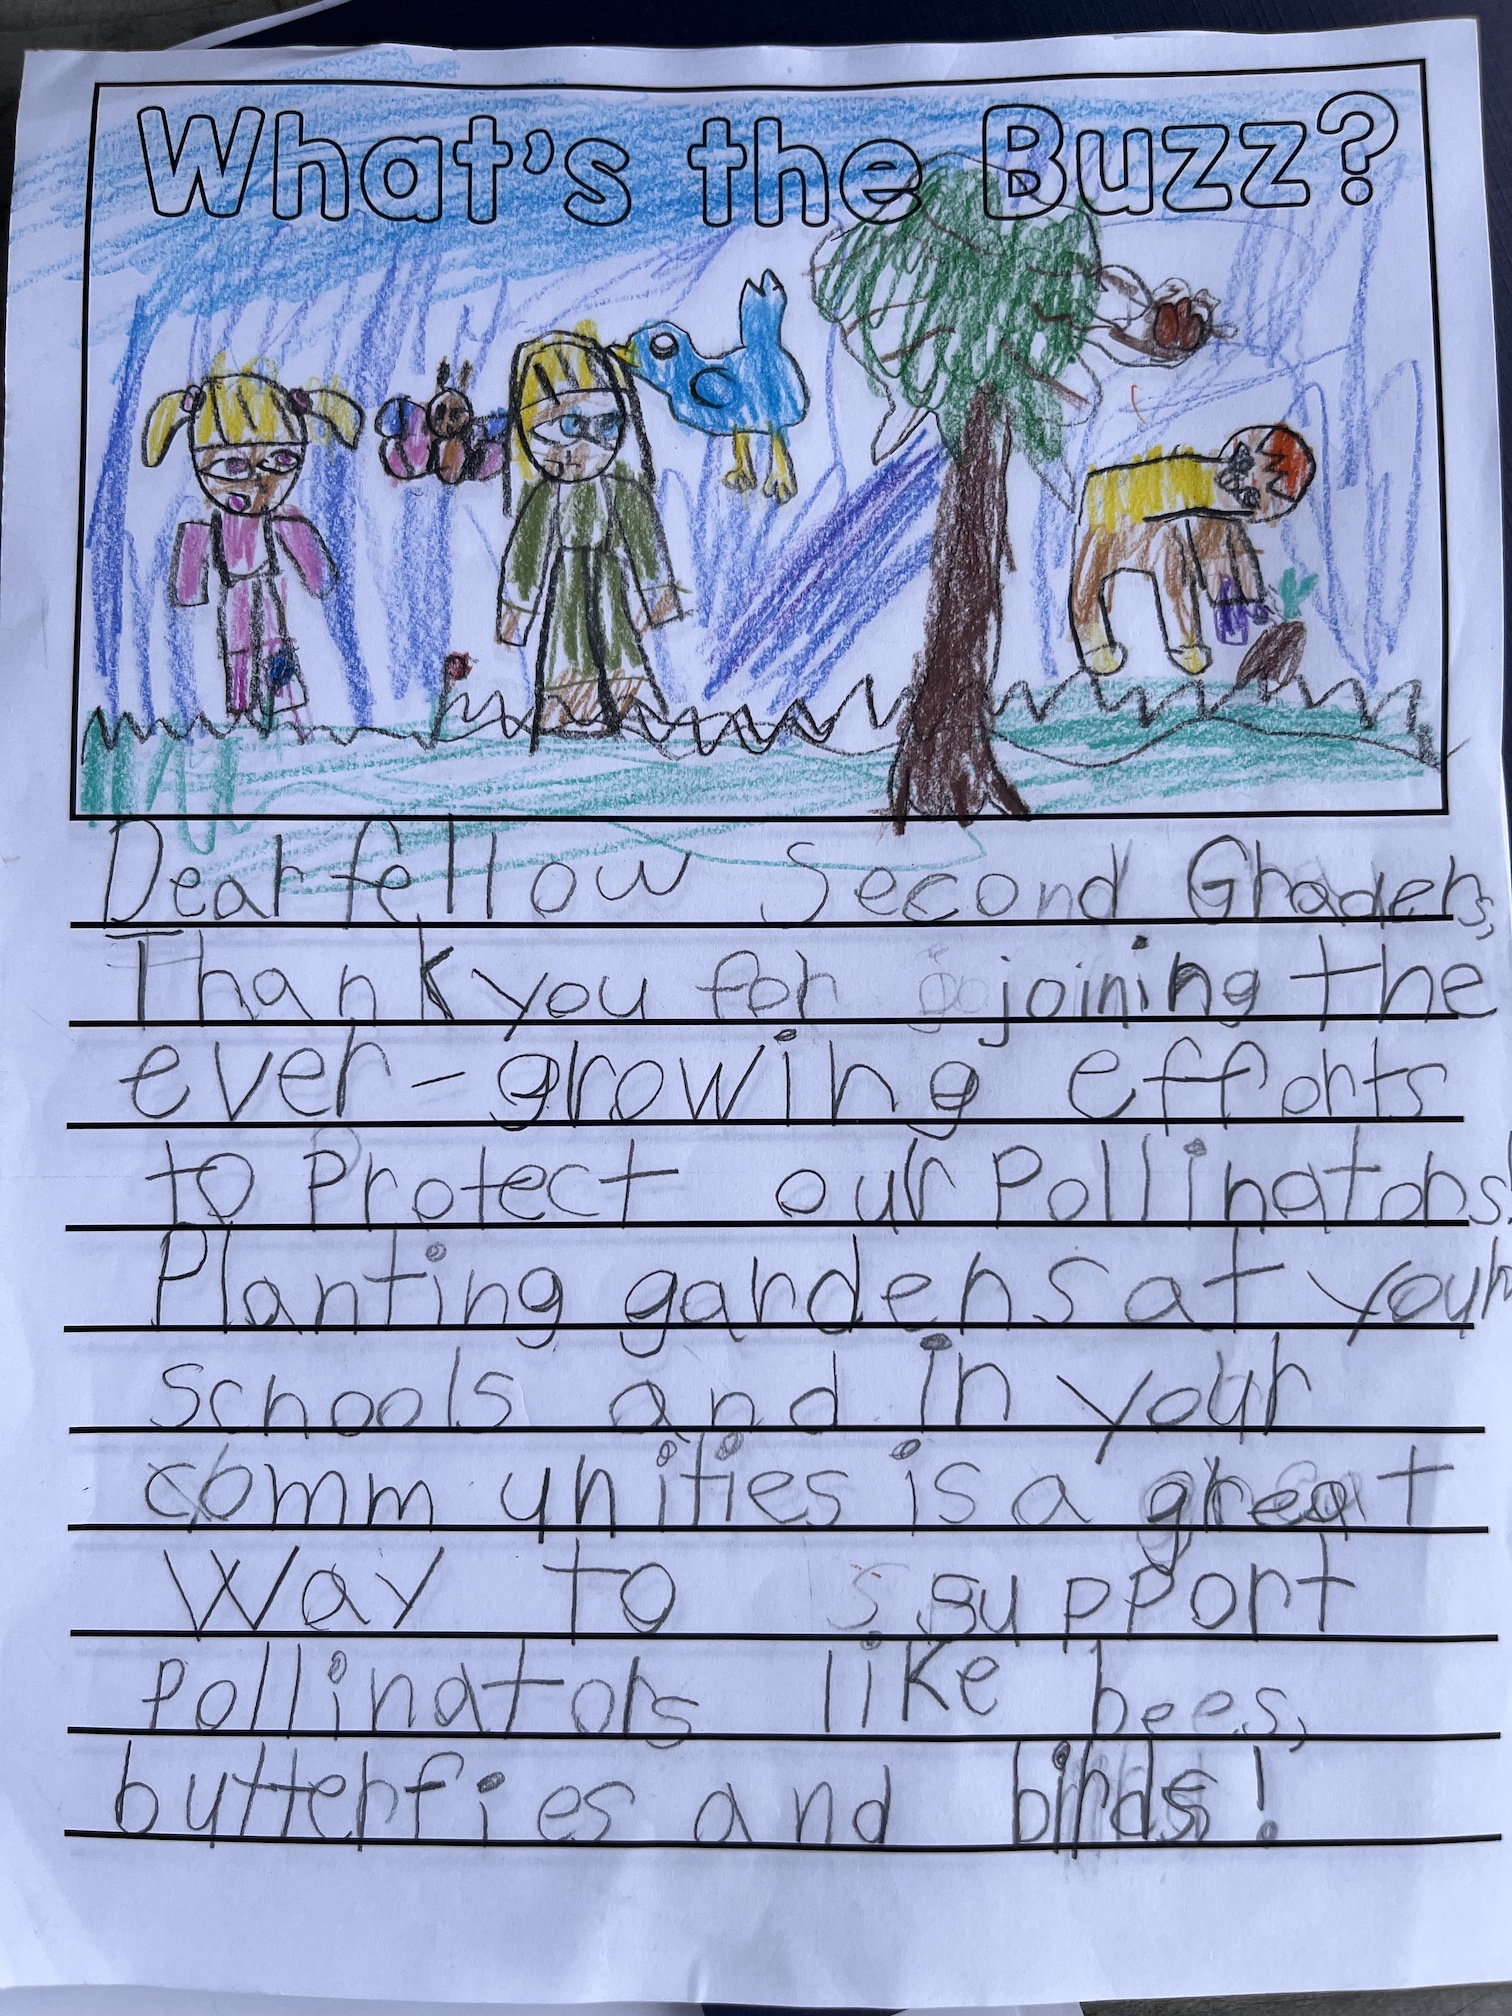 What's the Buzz?
Dear fellow Second Graders,
Thank you for joining the
ever-growing efforts
to Protect our Pollinators!
Planting gardens at your
schools and in your
communities is a great
Way to support
Pollinators like bees,
butterfies and birds!